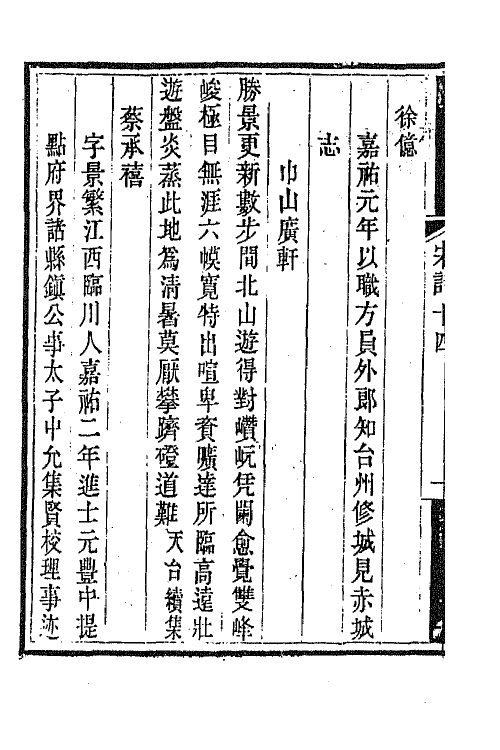 徐億
嘉祐元年以職方員外郎知台州修城見赤城
志
巾山廣軒
勝景更新數步間北山遊得對巑岏凭闌愈覺雙峰
峻極目無涯六幙寬特出喧卑賓曠達所臨高遠壯
遊盤炎蒸此地爲清暑莫厭攀躋磴道難天台續集
蔡承禧
字景繁江西臨川人嘉祐二年進士元豐中提
點府界諸縣鎮公事太子中允集賢校理事迹
宋詩十四